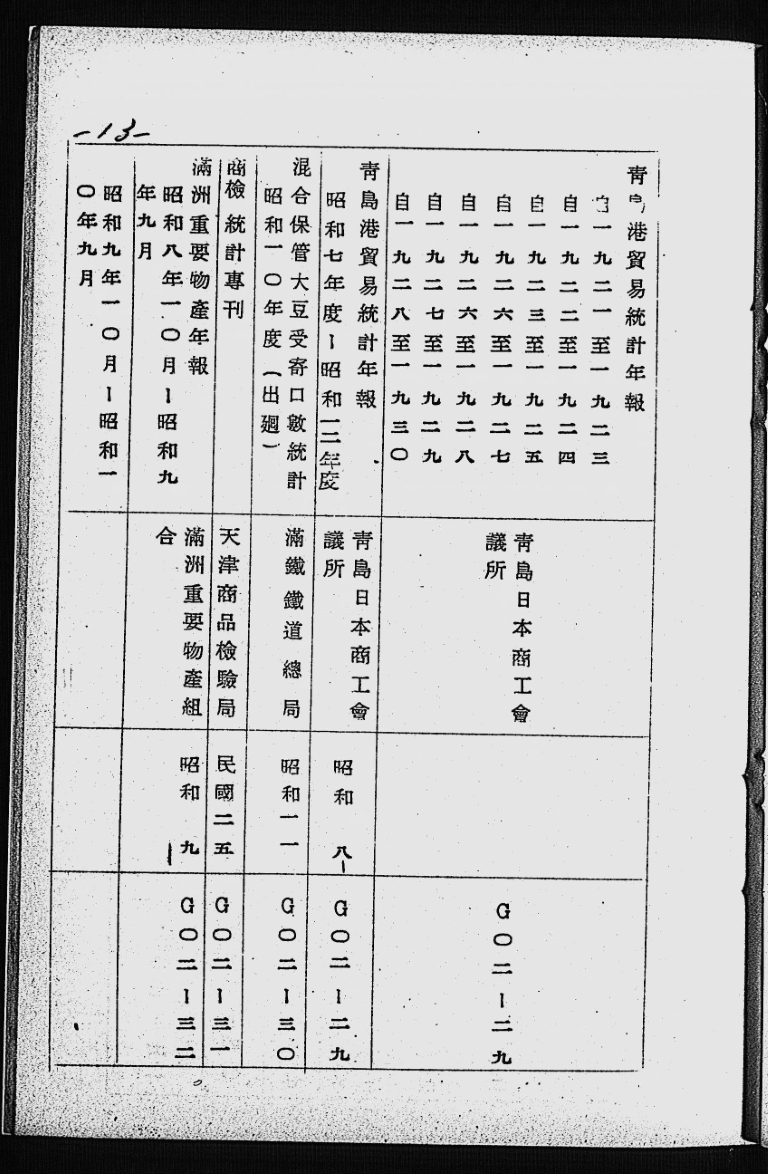 -13-
青島港貿易統計年報
自一九二一至一九二三
自一九二二至一九二四
自一九二三至一九二五
自一九二六至一九二七
自一九二六至一九二八
自一九二七至一九二九
自一九二八至一九三〇
青島日本商工會
議所
G〇二ー二九
青島港貿易統計年報
昭和七年度ー昭和一二年度
青島日本商工會
議所
昭和 八ー
G〇二ー二九
混合保管大豆受寄口數統計
昭和一〇年度(出廻)
滿鐵鐵道總局
昭和一一
G〇二ー三〇
商檢統計專刊
天津商品檢驗局
民國二五
G〇二ー三一
滿洲重要物產年報
昭和八年一〇月ー昭和九
年九月
滿洲重要物產組
合
昭和 九
ー
G〇二ー三二
昭和九年一〇月ー昭和一
〇年九月